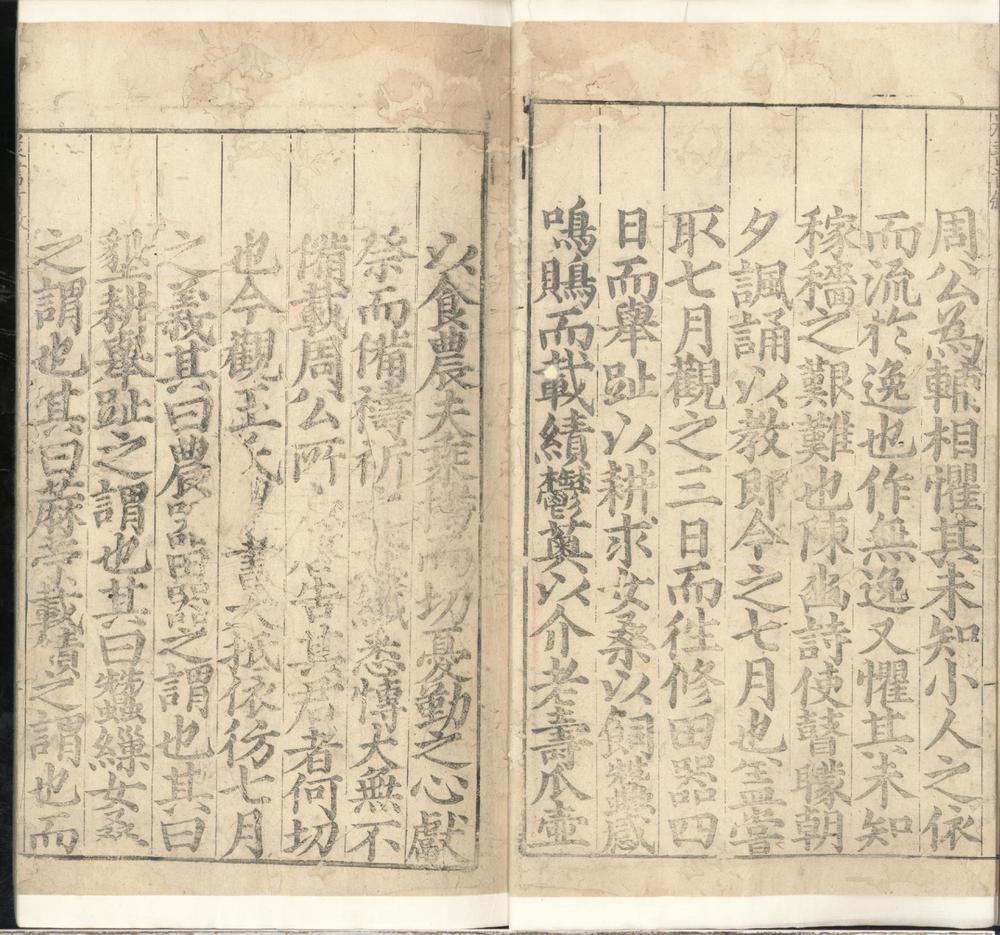 周公為輔相懼其未知小人之依
而流於逸也作無逸又懼其未知
稼穡之艱難也陳豳詩使瞽矇朝
夕諷誦以教即今之七月也盖嘗
取七月觀之三日而徃修田器四
日而舉趾以耕求女桑以飼蠶感
鳴鵙而載績鬱薁以介老壽瓜壺
以食農夫乘 而切憂勤之心獻
祭而備禱祈 纖悉慱大無不
備載周公所 告其君者何切
也今觀王 書大抵依彷七月
之義其曰農 田器之謂也其曰
墾耕舉趾之謂也其曰蠶繅女桑
之謂也其曰蔴 載績之謂也而